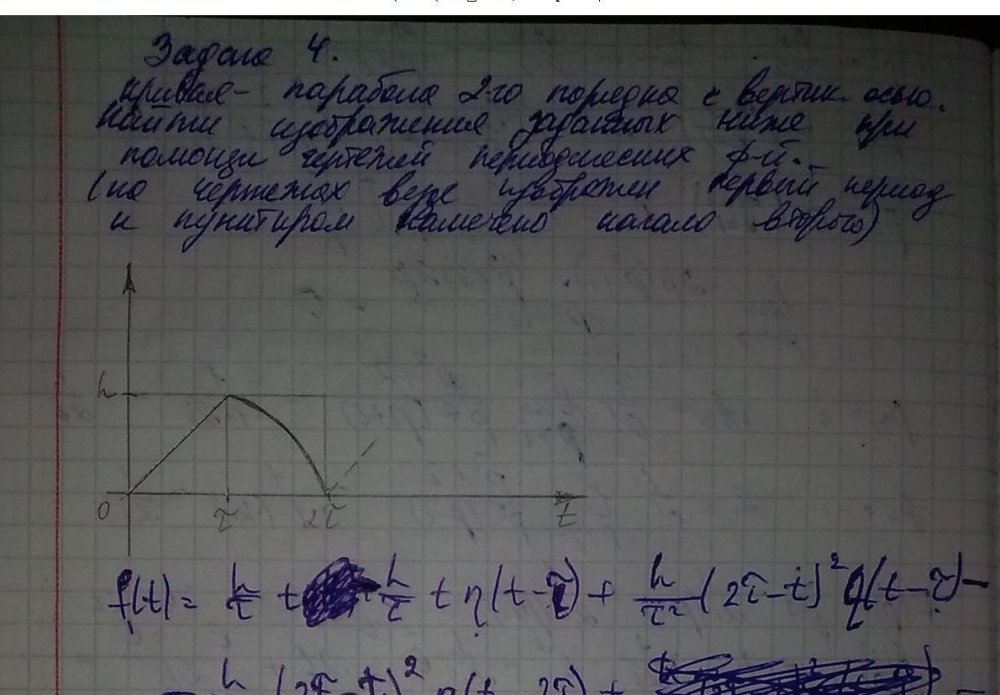 Задача 4.
кривая - парабола 2-го порядка с вертик. осью.
Найти изображения заданных ниже при
помощи чертежей периодических ф-й.
(на чертежах везде изображен первый период
и пунктиром намечено начало второго)
h
0 τ 2τ t
f(t) = h/τ t - h/τ t η(t-τ) + h/τ² (2τ-t)² η(t-τ) -
- h (2τ-t)² η(t-2τ) +